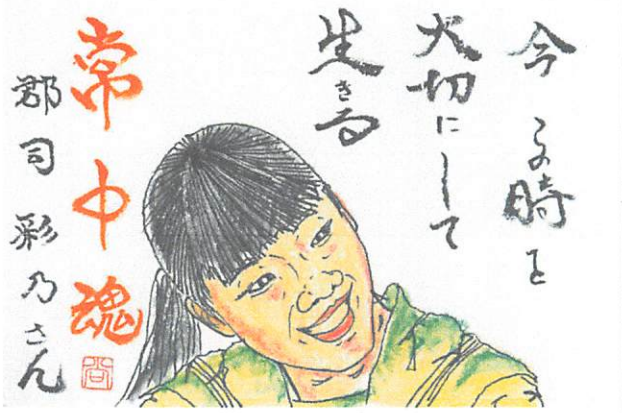 今この時を
大切にして
生きる
常中魂
郡司彩乃さん